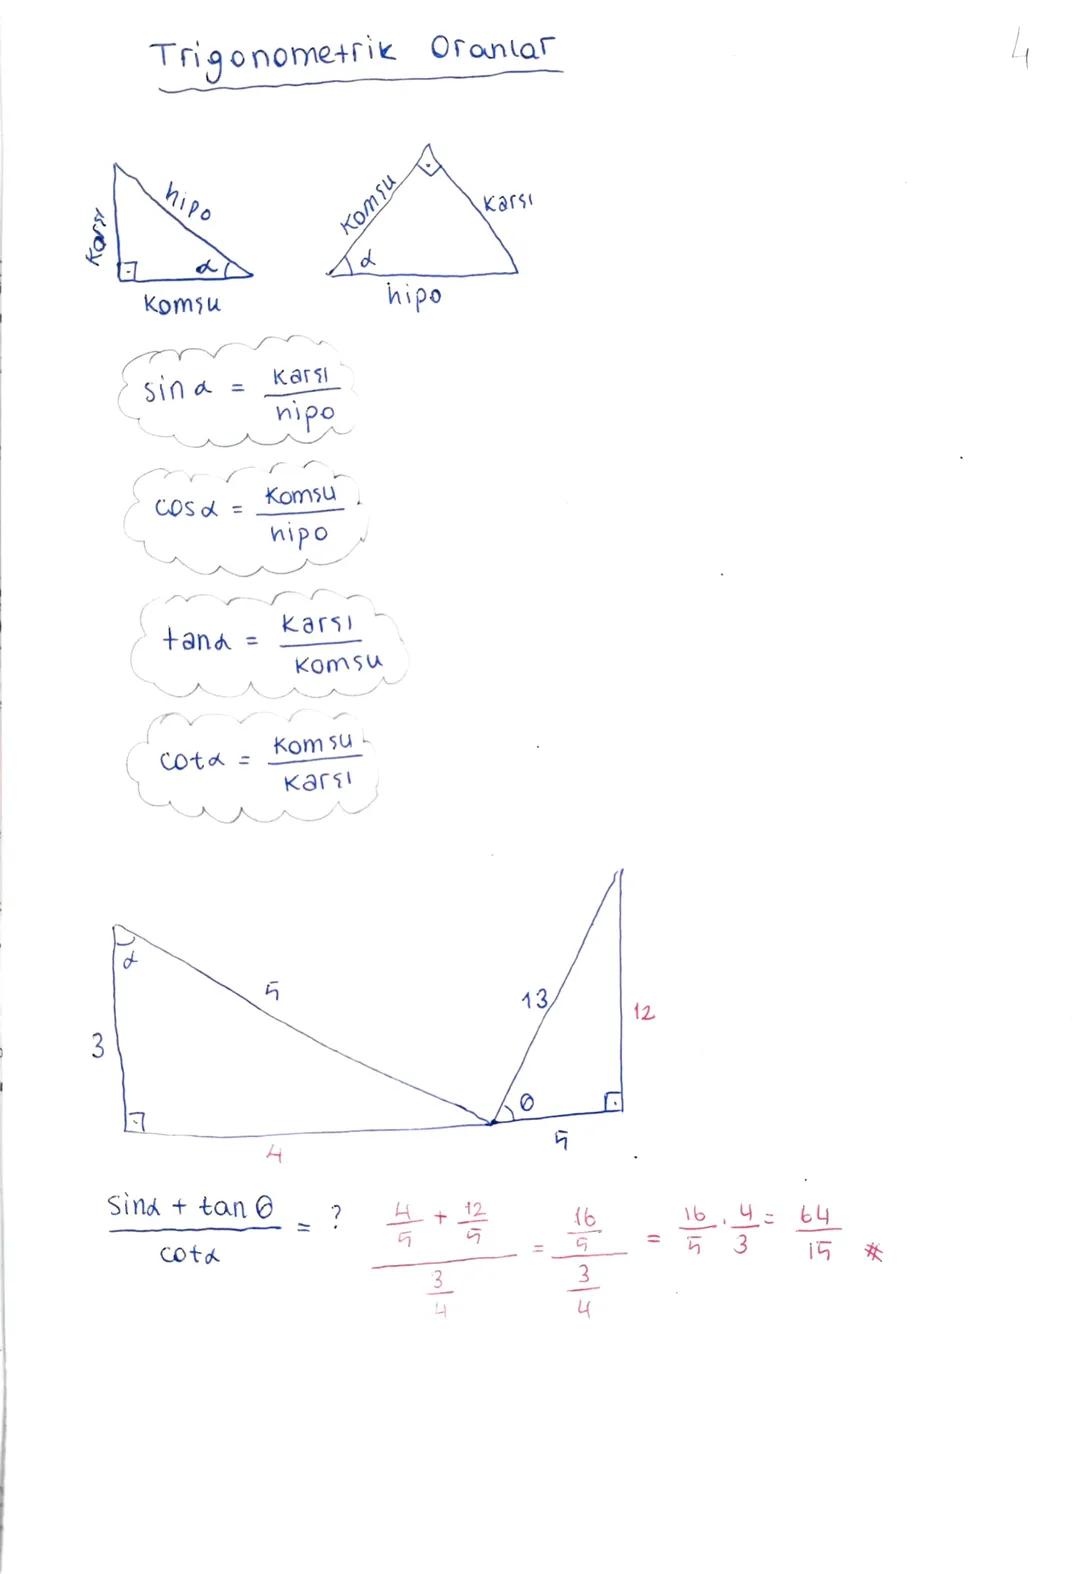 Trigonometrik Oranlar
4
hipo
Karşı
α
Komşu
Komşu
Karşı
α
hipo
sin α = Karşı / hipo
cos α = Komşu / hipo
tan α = Karşı / Komşu
cot α = Komşu / Karşı
α
5
3
4
13
12
θ
5
(sin α + tan θ) / cot α = ? (4/5 + 12/5) / (3/4) = (16/5) / (3/4) = 16/5 . 4/3 = 64/15 *